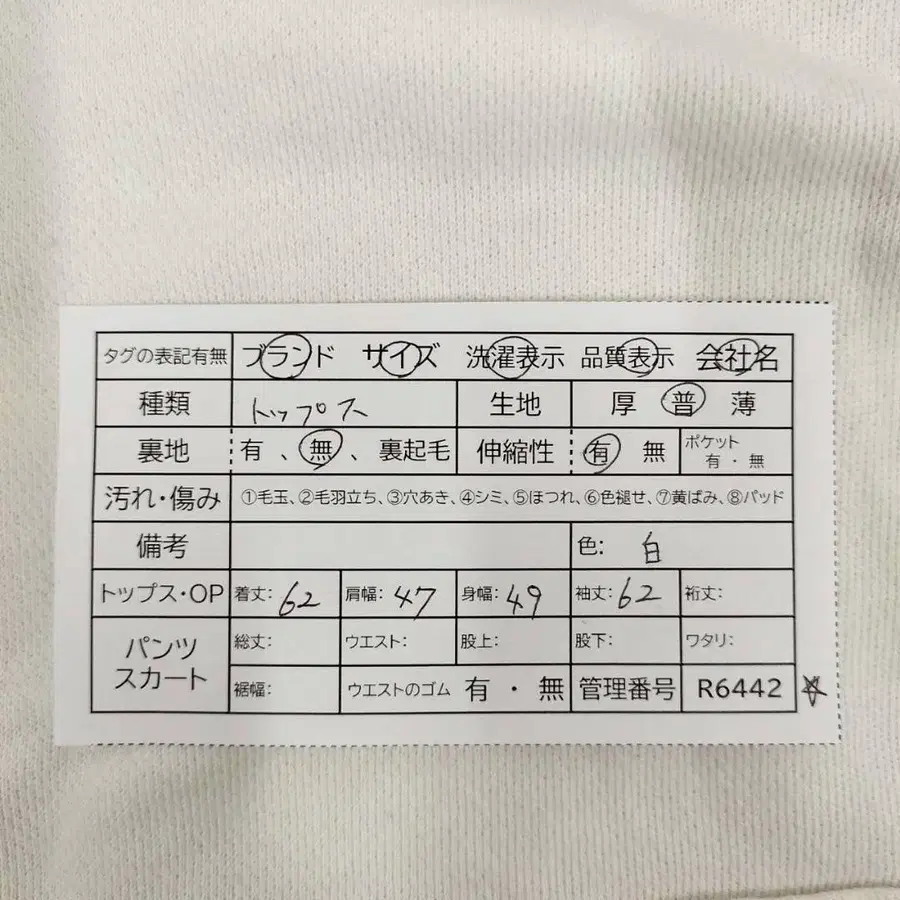 タグの表記有無 ブランド サイズ 洗濯表示 品質表示 会社名
種類 トップス 生地 厚 普 薄
裏地 有 、 無 、 裏起毛 伸縮性 有 無 ポケット 有・無
汚れ・傷み ①毛玉、②毛羽立ち、③穴あき、④シミ、⑤ほつれ、⑥色褪せ、⑦黄ばみ、⑧パッド
備考 色: 白
トップス・OP 着丈: 62 肩幅: 47 身幅: 49 袖丈: 62 裄丈:
パンツ スカート 総丈: ウエスト: 股上: 股下: ワタリ:
裾幅: ウエストのゴム 有 ・ 無 管理番号 R6442